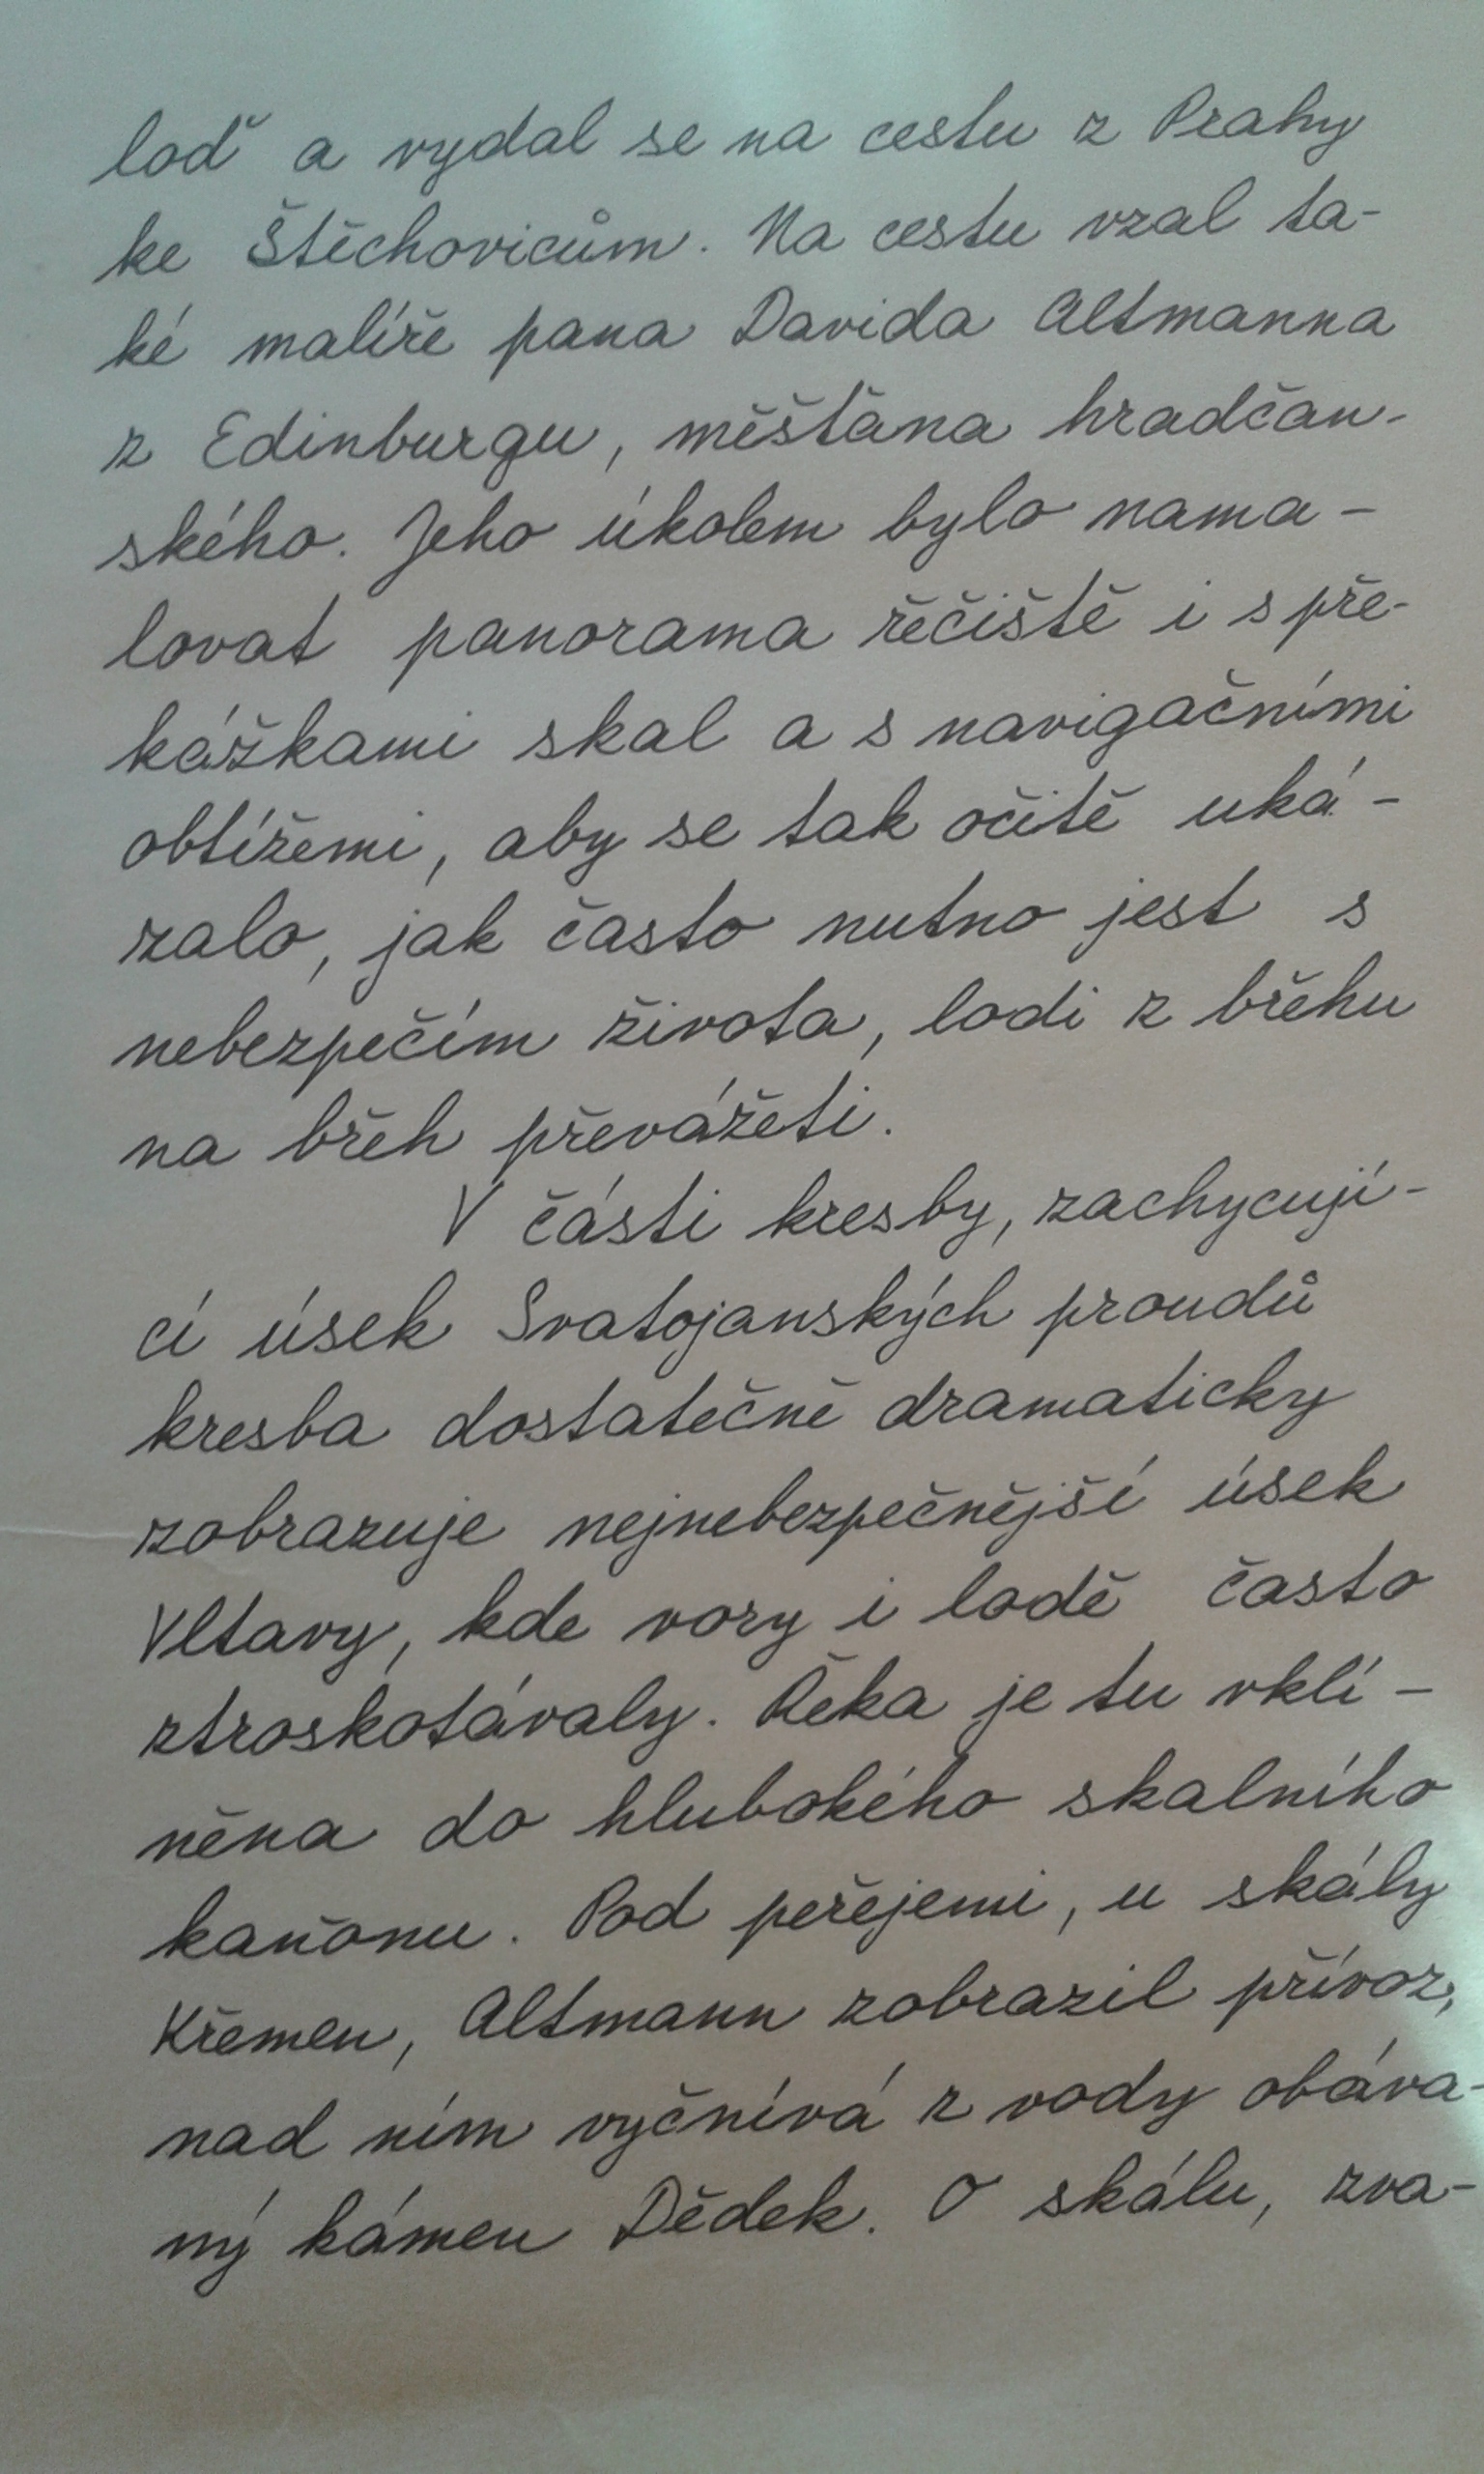 loď a vydal se na cestu z Prahy
ke Štěchovicům. Na cestu vzal ta-
ké malíře pana Davida Altmanna
z Edinburgu, měšťana hradčan-
ského. Jeho úkolem bylo nama-
lovat panorama řečiště i s pře-
kážkami skal a s navigačními
obtížemi, aby se tak očitě uká-
zalo, jak často nutno jest s
nebezpečím života, lodi z břehu
na břeh převážeti.
V části kresby, zachycují-
cí úsek Svatojanských proudů
kresba dostatečně dramaticky
zobrazuje nejnebezpečnější úsek
Vltavy, kde vory i lodě často
ztroskotávaly. Řeka je tu vklí-
něna do hlubokého skalního
kaňonu. Pod peřejemi, u skály
Křemen, Altmann zobrazil přívoz,
nad ním vyčnívá z vody obáva-
ný kámen Dědek. O skálu, zva-